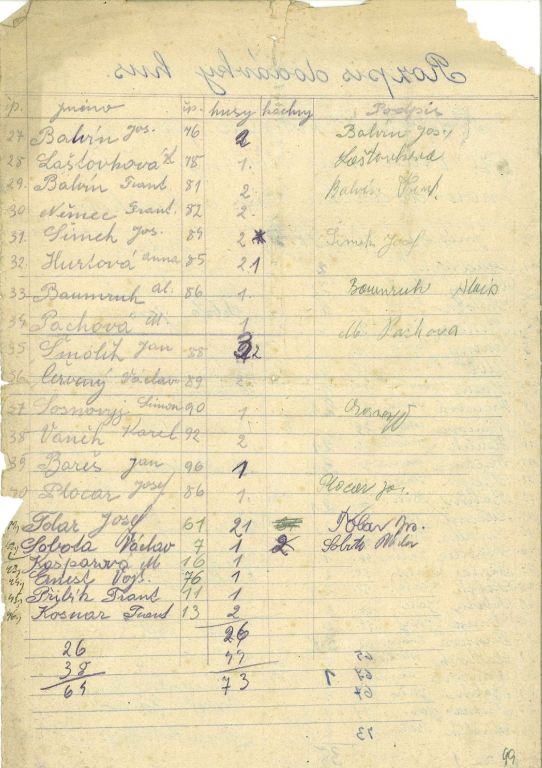 Rozpis dodávky hus.
čp. jméno čp. husy kachny Podpis
27 Balvín Jos. 76 2 Balvín Josef
28 Laštovková 78 1. Laštovková
29. Balvín Frant. 81 2. Balvín Frant.
30 Němec Frant. 82 2.
31. Šimek Jos. 84 2 Šimek Josef
32. Hurtová Anna 85 21
33 Baumruk Al. 86 1. Baumruk Alois
34 Pachová M. 1 M Pachova
35 Smolík Jan 88 2
36 Červený Václav 89 2.
37 Sosnovyj Simon 90 1
38 Vaněk Karel 92 2
39 Bareš Jan 96 1
40 Plocar Josef 86 1. Plocar Jos.
Tolar Josef 61 21 Tolar Jos.
Sobota Václav 7 1 2
Kašparova M 16 1
Ernest Voj. 76 1
Přibík Frant 11 1
Kosnar Frant 13 2
26
26
38
64 73
67
73
99